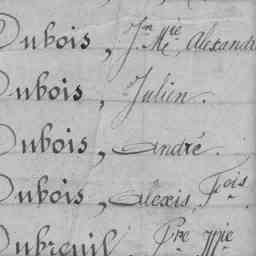 Dubois, Jn Mie, Alexandre
Dubois, Julien.
Dubois, André.
Dubois, Alexis, Fois.
Dubreuil, Pre